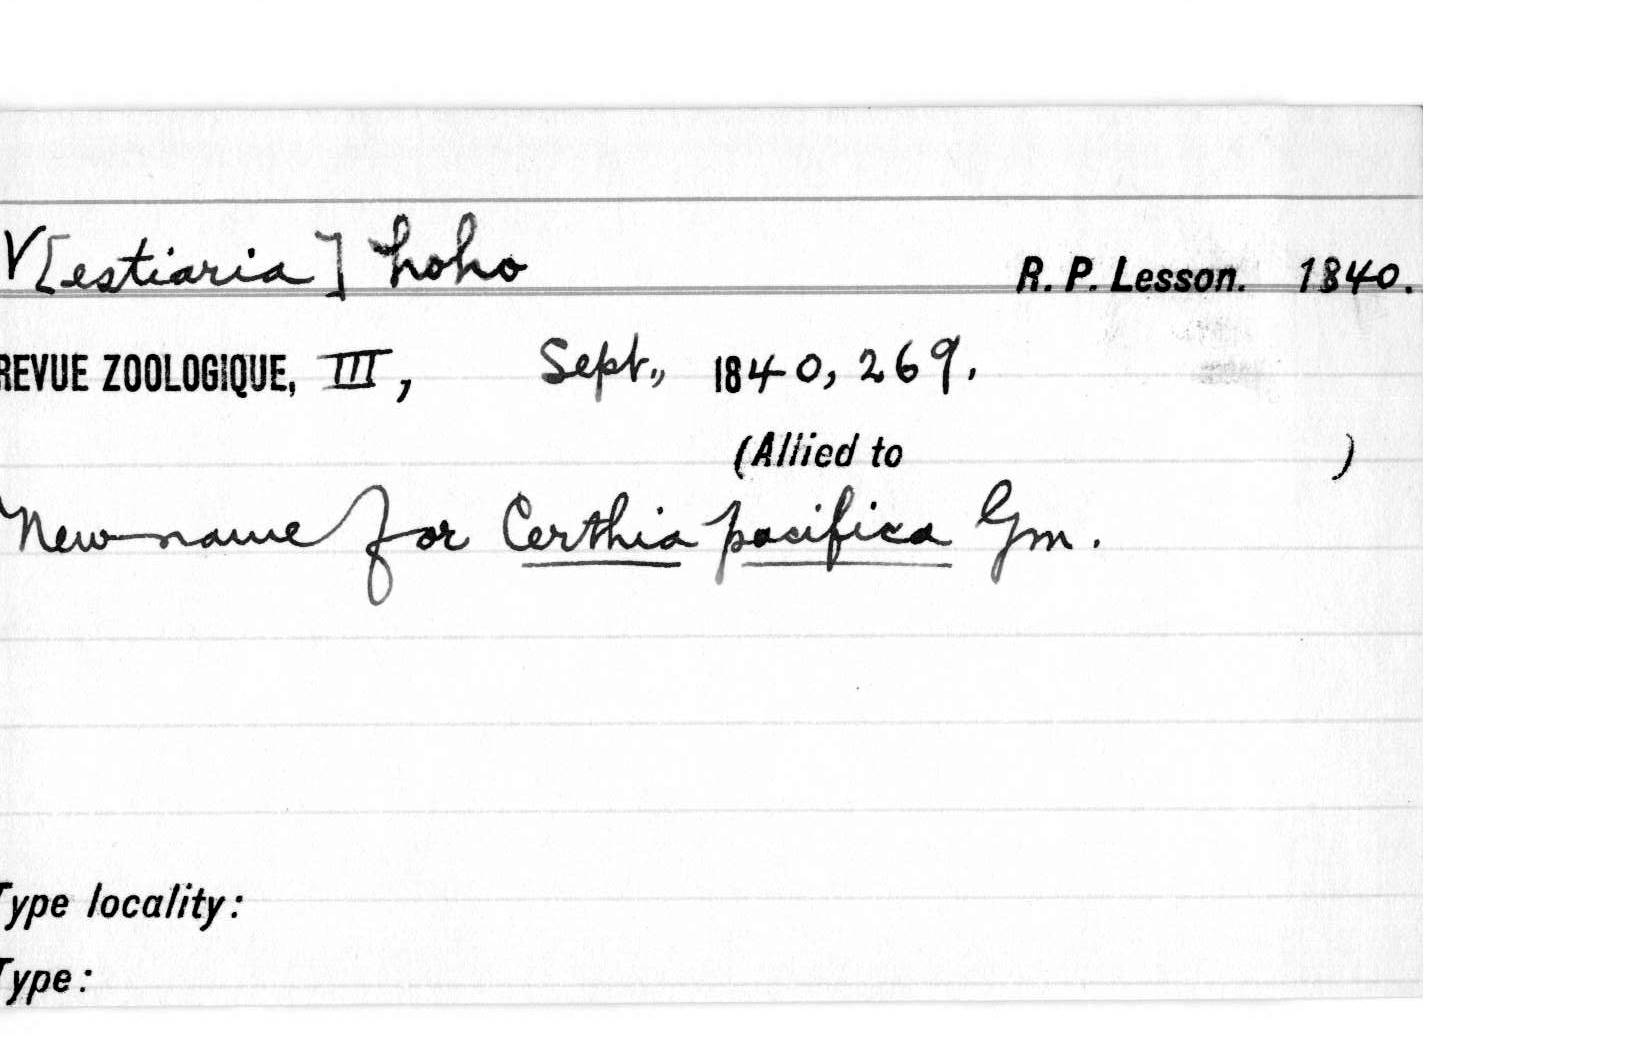 V[estiaria] hoho R. P. Lesson. 1840.
REVUE ZOOLOGIQUE, III, Sept., 1840, 269.
(Allied to )
New name for Certhia pacifica Gm.
Type locality:
Type: